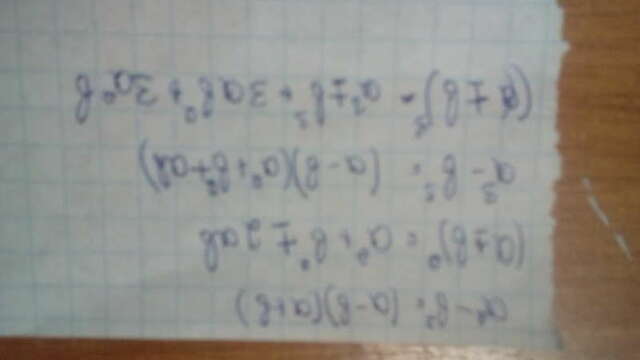 a²-b²=(a-b)(a+b)
(a±b)²=a²+b²±2ab
a³-b³=(a-b)(a²+b²+ab)
(a±b)³=a³±b³+3ab²+3a²b